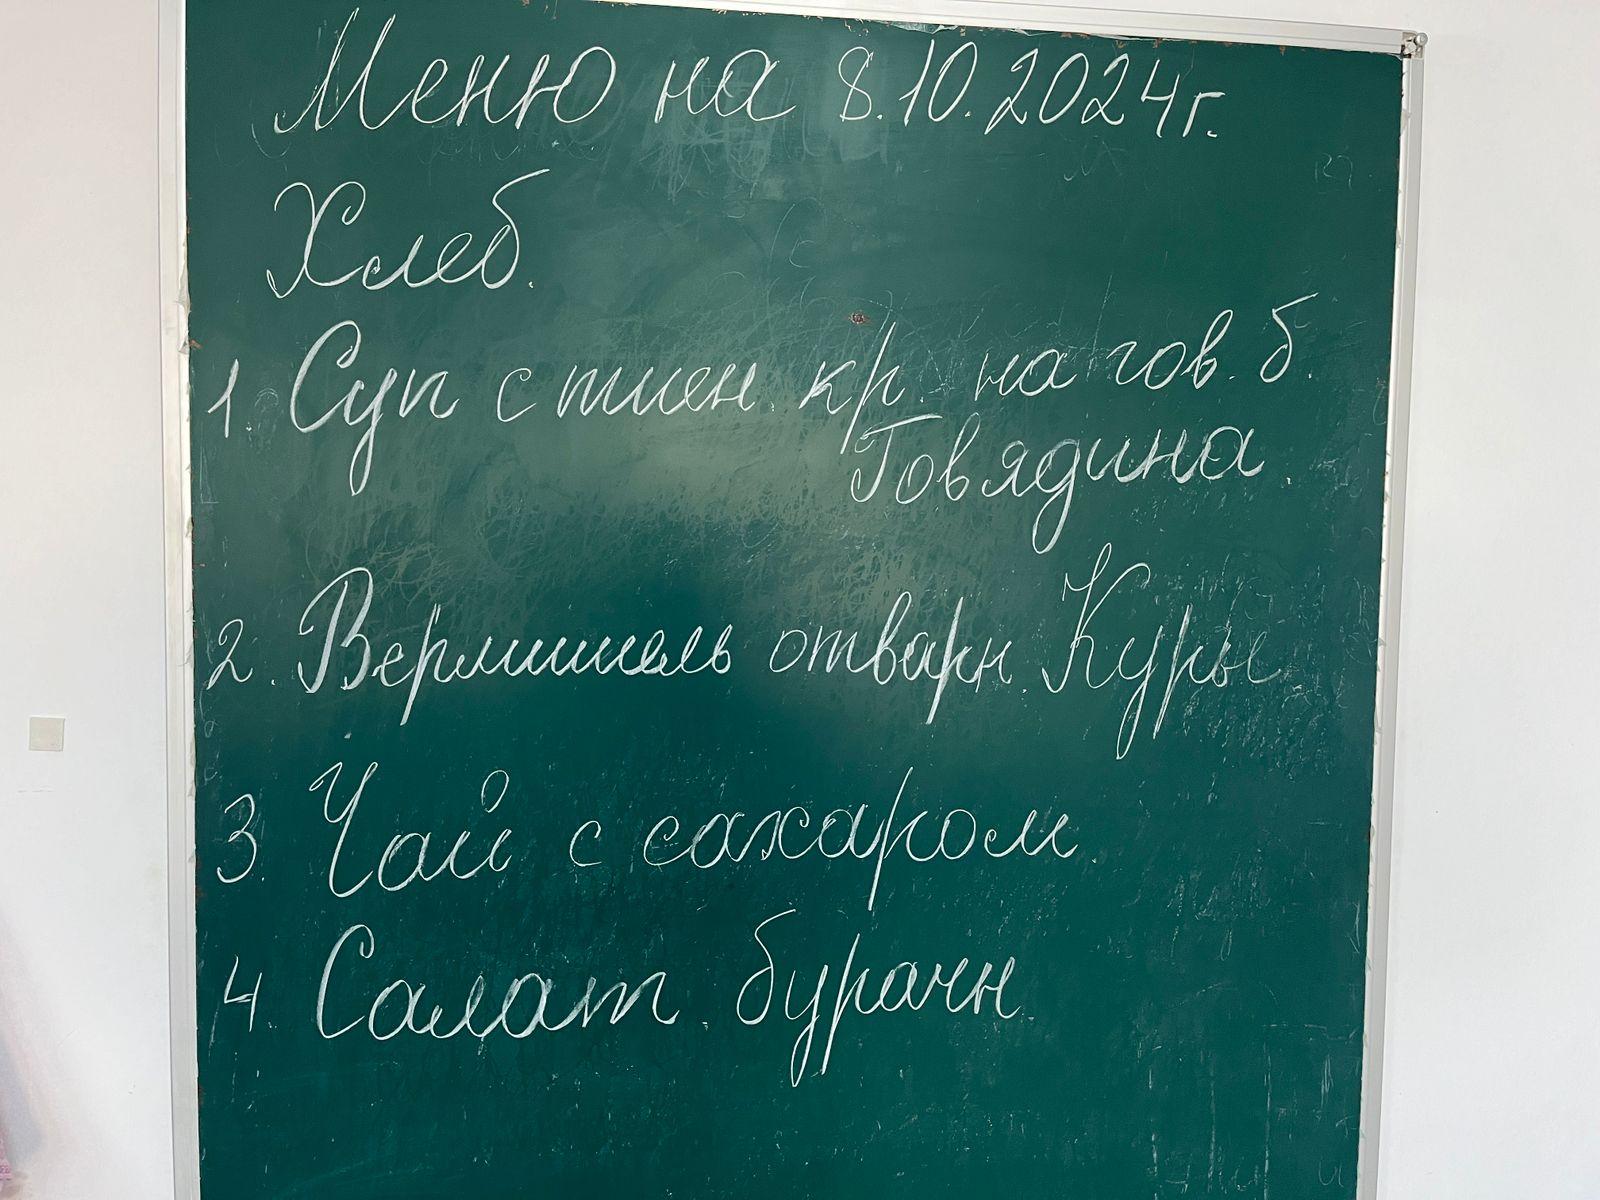 Меню на 8.10.2024г.
Хлеб.
1. Суп с пшен. кр. на гов. б.
Говядина.
2. Вермишель отварн. Куры
3. Чай с сахаром.
4. Салат бурачн.